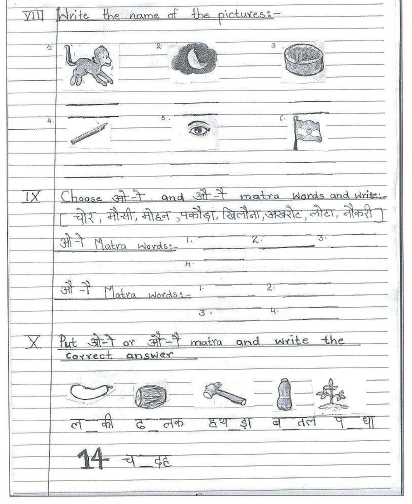 VIII Write the name of the pictures:-
1. 2. 3.
4. 5. 6.
IX Choose ओ-ो and औ-ौ matra words and write:-
[ चोर, मौसी, मोहन, पकौड़ा, खिलौना, अखरोट, लोटा, नौकरी ]
ओ-ो Matra Words:- 1. 2. 3.
4.
औ-ौ Matra Words:- 1. 2.
3. 4.
X Put ओ-ो or औ-ौ matra and write the
correct answer
ल_की ढ_लक हथ_ड़ा ब_तल प_धा
14 च_दह